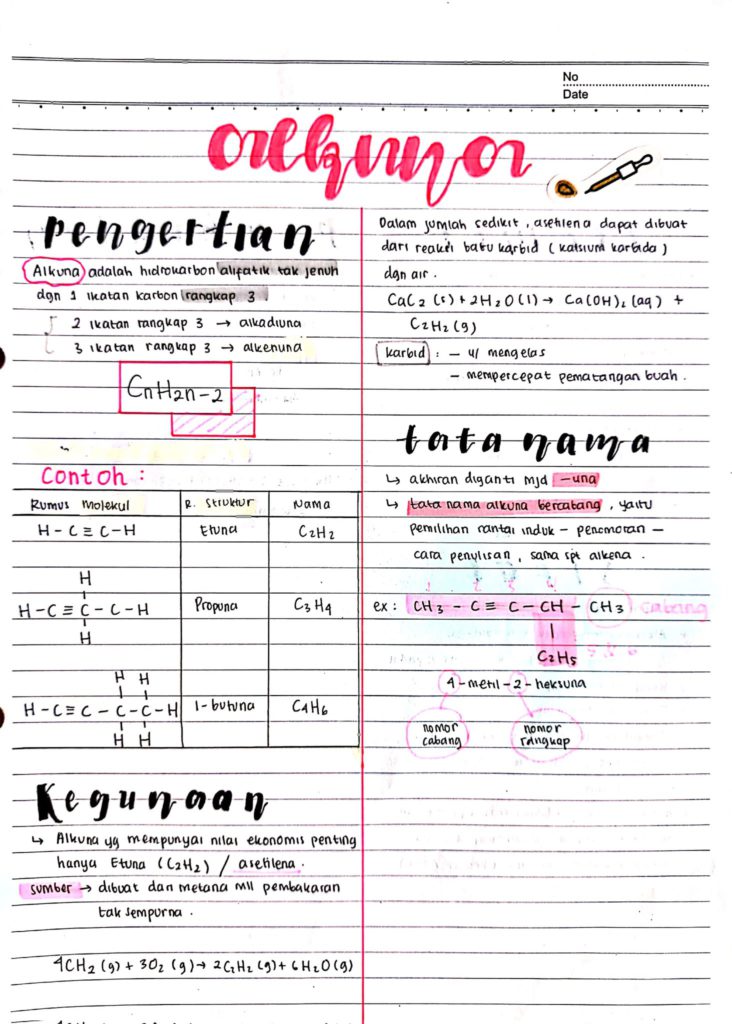 No
Date
alkuna
pengertian
Alkuna adalah hidrokarbon alifatik tak jenuh
dgn 1 ikatan karbon rangkap 3
2 ikatan rangkap 3 → alkadiuna
3 ikatan rangkap 3 → alkenuna
CnH2n-2
Contoh :
Rumus Molekul R. Struktur Nama
H-C≡C-H Etuna C2H2
H
H-C≡C-C-H Propuna C3H4
H
H H
H-C≡C-C-C-H 1-butuna C4H6
H H
Kegunaan
↳ Alkuna yg mempunyai nilai ekonomis penting
hanya Etuna (C2H2) / asetilena.
sumber → dibuat dari metana mll pembakaran
tak sempurna.
4CH2 (g) + 3O2 (g) → 2C2H2 (g) + 6H2O (g)
Dalam jumlah sedikit, asetilena dapat dibuat
dari reaksi batu karbid (kalsium karbida)
dgn air.
CaC2 (s) + 2H2O (l) → Ca(OH)2 (aq) +
C2H2 (g)
Karbid : - u/ mengelas
- mempercepat pematangan buah.
tata nama
↳ akhiran diganti mjd -una
↳ tata nama alkuna bercabang, yaitu
pemilihan rantai induk - penomoran -
cara penulisan, sama spt alkena.
1 2 3 4
ex : CH3 - C ≡ C - CH - CH3 cabang
|
C2H5 5 & 6
4-metil-2-heksuna
nomor cabang
nomor rangkap